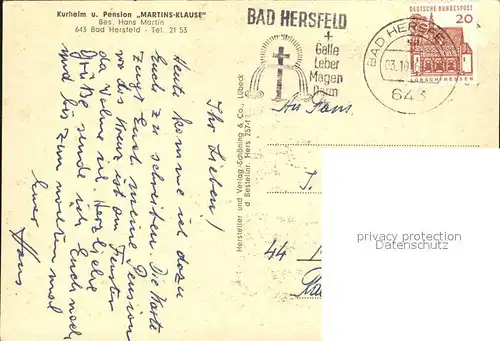 Kurheim u. Pension „MARTINS-KLAUSE"
Bes. Hans Martin
643 Bad Hersfeld - Tel. 21 53
Ihr Lieben!
Heute komme ich dazu
Euch zu schreiben. Die Karte
zeigt Euch meine Pension
wo das Kreuz ist am Fenster
da wohne ich. Herzliche
Grüße sende ich Euch noch
und bis zum nächsten mal
Euer
Hans.
Hersteller und Verlag Schöning & Co., Lübeck
Bestellnr. Hers
BAD HERSFELD
+
Galle
Leber
Magen
Darm
BAD HERSFE
03.10
643
DEUTSCHE BUNDESPOST
20
LORSCH/HESSEN
An Fam.
J.
44
privacy protection
Datenschutz